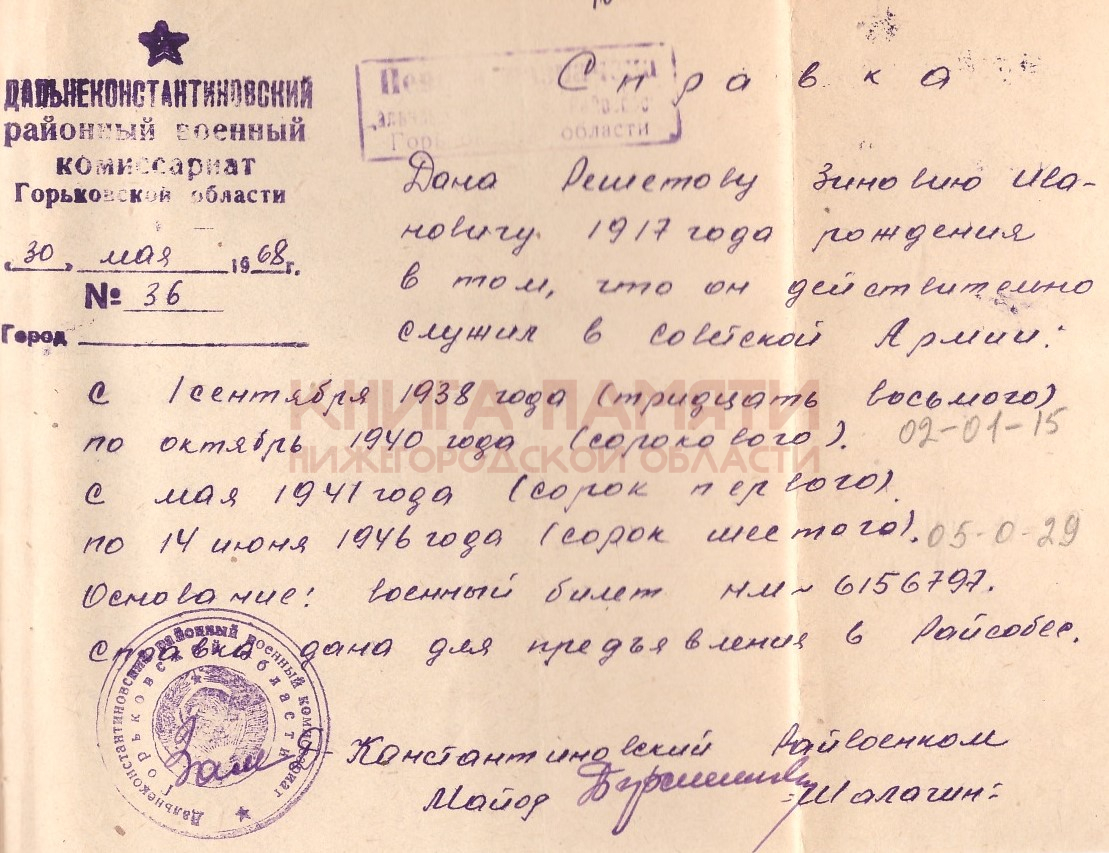 ДАЛЬНЕКОНСТАНТИНОВСКИЙ
районный военный
комиссариат
Горьковской области
„30„ мая 1968 г.
№ 36
Город
области
Справка
Дана Решетову Зиновию Ива-
новичу 1917 года рождения
в том, что он действительно
служил в Советской Армии:
с 1 сентября 1938 года (тридцать восьмого)
по октябрь 1940 года (сорокового). 02-01-15
с мая 1941 года (сорок первого).
по 14 июня 1946 года (сорок шестого). 05-0-29
Основание: военный билет НМ~ 6156797.
Справка дана для предъявления в Райсобес.
Константиновский Райвоенком
Майор :Шалагин:
Зам
Дальнеконстантиновский районный военный комиссариат
Горьковской области
КНИГА ПАМЯТИ
НИЖЕГОРОДСКОЙ ОБЛАСТИ